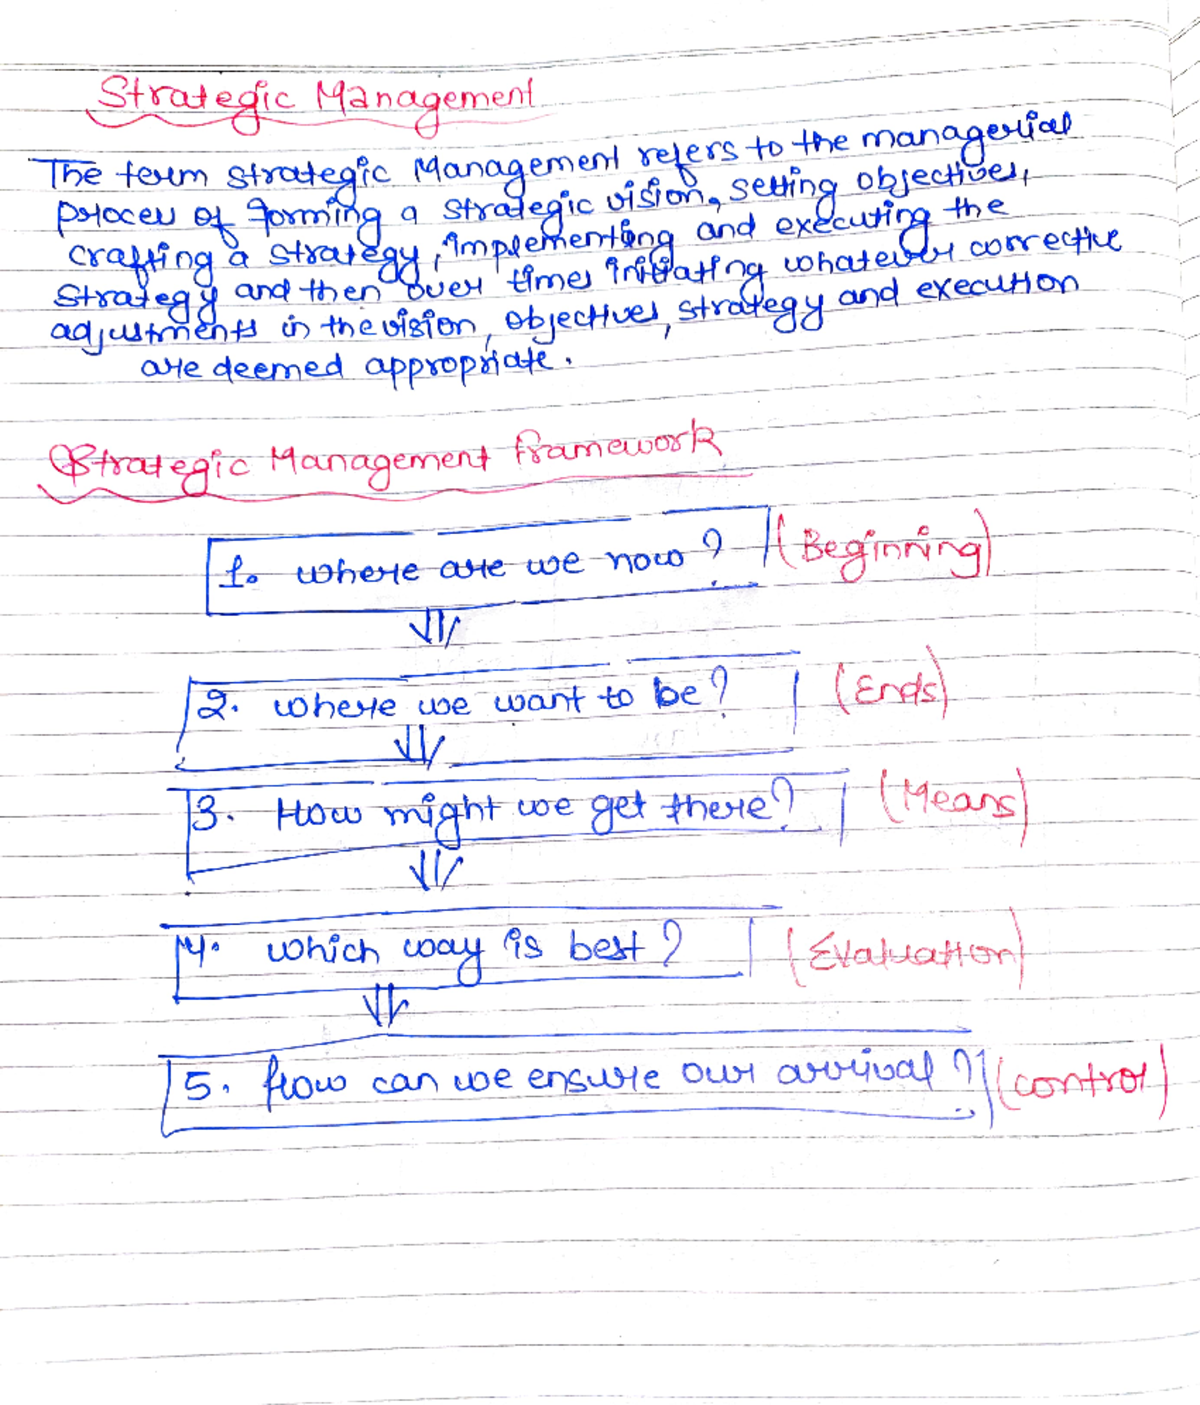 Strategic Management
The term strategic Management refers to the managerial
process of forming a strategic vision, setting objectives,
crafting a strategy, implementing and executing the
strategy and then over times initiating whatever corrective
adjustments in the vision, objectives, strategy and execution
are deemed appropriate.
Strategic Management framework
1. where are we now ? (Beginning)
2. where we want to be? (Ends)
3. How might we get there? (Means)
4. which way is best ? (Evaluation)
5. How can we ensure our arrival ? (control)